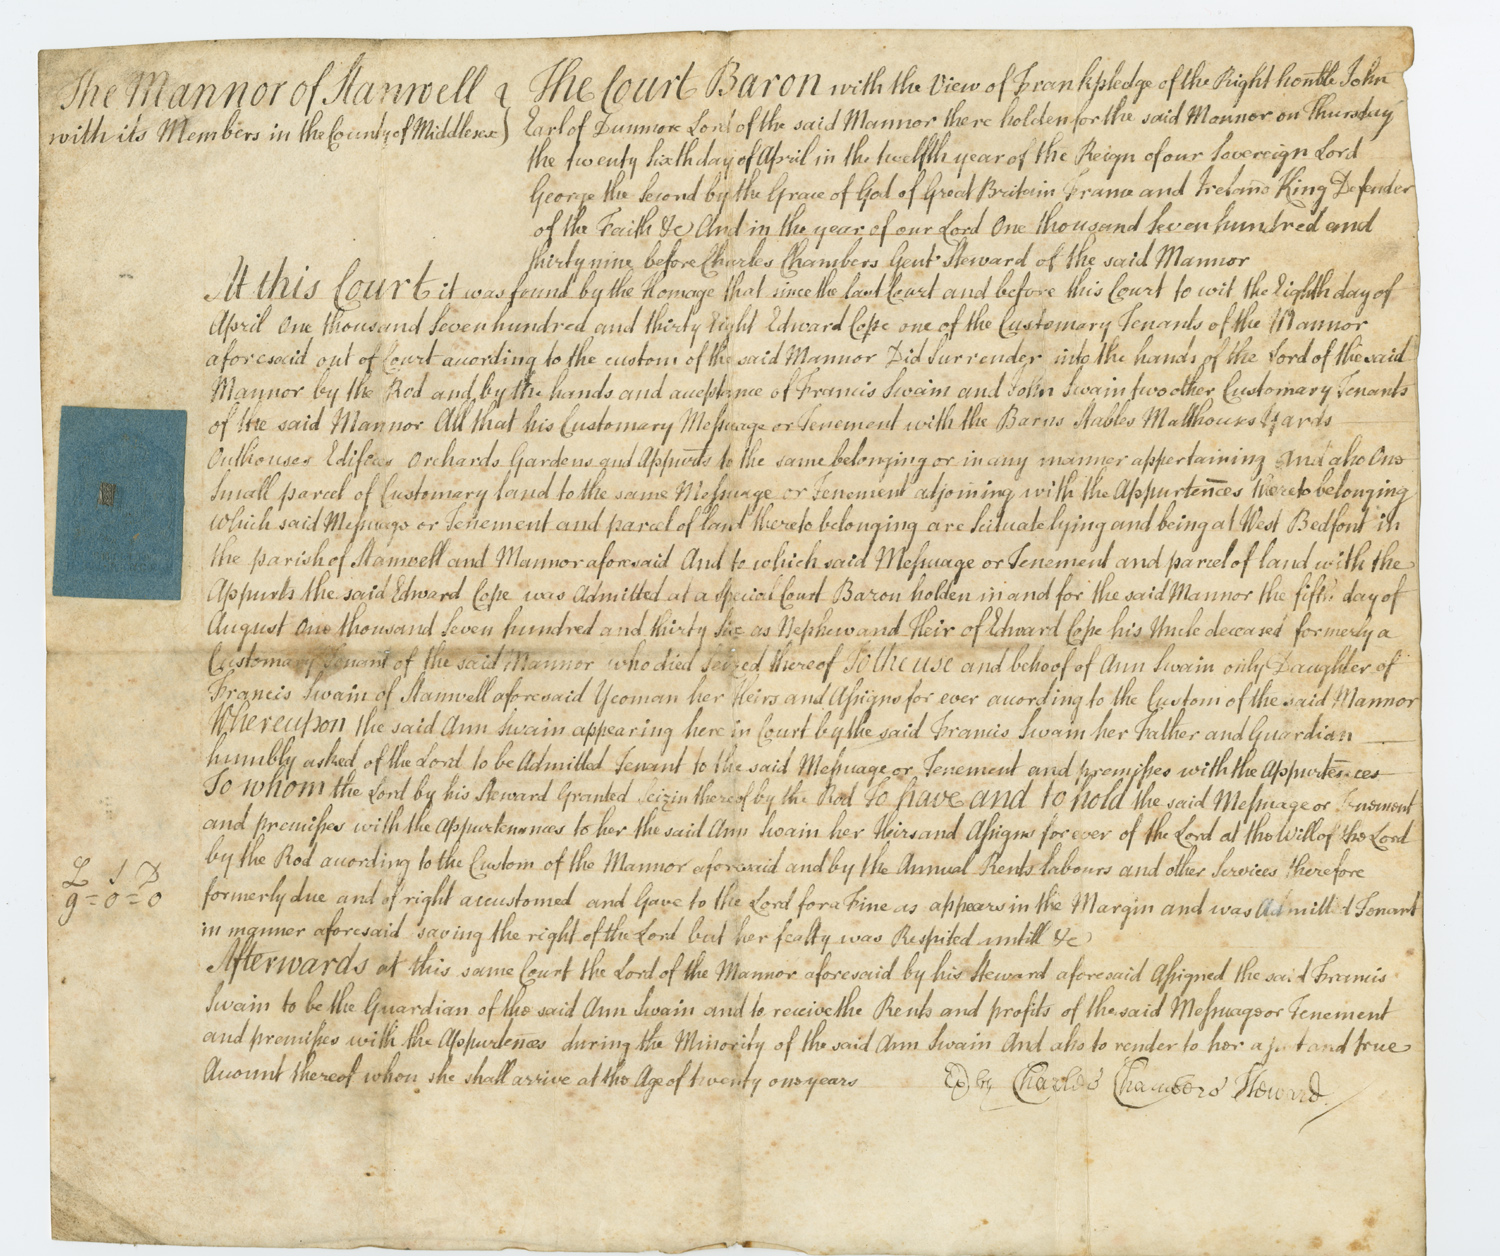 The Mannor of Stanwell
with its Members in the County of Middlesex
The Court Baron with the View of Frankpledge of the Right honble John
Earl of Dunmore Lord of the said Mannor there holden for the said Mannor on Thursday
the twenty sixth day of April in the twelfth year of the Reign of our Sovereign Lord
George the Second by the Grace of God of Great Britain France and Ireland King Defender
of the Faith &c And in the year of our Lord One thousand Seven hundred and
thirty nine before Charles Chambers Gent Steward of the said Mannor
At this Court it was found by the homage that since the last Court and before this Court to wit the Eighth day of
April One thousand Seven hundred and thirty Eight Edward Cope one of the Customary Tenants of the Mannor
aforesaid out of Court according to the custom of the said Mannor Did Surrender into the hands of the Lord of the said
Mannor by the Rod and by the hands and acceptance of Francis Swain and John Swain two other Customary Tenants
of the said Mannor All that his Customary Messuage or Tenement with the Barns Stables Malthouses Yards
Outhouses Edifices Orchards Gardens and Appurts to the same belonging or in any manner appertaining And also One
Small parcel of Customary land to the same Messuage or Tenement adjoining with the Appurtences thereto belonging
which said Messuage or Tenement and parcel of land thereto belonging are Scituate lying and being at West Bedfont in
the parish of Stanwell and Mannor aforesaid And to which said Messuage or Tenement and parcel of land with the
Appurts the said Edward Cope was Admitted at a Special Court Baron holden in and for the said Mannor the fifth day of
August One thousand Seven hundred and thirty Six as Nephew and Heir of Edward Cope his Uncle deceased formerly a
Customary Tenant of the said Mannor who died seized thereof To the use and behoof of Ann Swain only Daughter of
Francis Swain of Stanwell aforesaid Yeoman her Heirs and Assigns for ever according to the Custom of the said Mannor
Whereupon the said Ann Swain appearing here in Court by the said Francis Swain her Father and Guardian
humbly asked of the Lord to be Admitted Tenant to the said Messuage or Tenement and premisses with the Appurtences
To whom the Lord by his Steward Granted Seizin thereof by the Rod To have and to hold the said Messuage or Tenement
and premisses with the Appurtenances to her the said Ann Swain her Heirs and Assigns for ever of the Lord at the Will of the Lord
by the Rod according to the Custom of the Mannor aforesaid and by the Annual Rents labours and other Services therefore
£ S D
9 = 0 = 0
formerly due and of right accustomed and Gave to the Lord for a Fine as appears in the Margin and was Admitted Tenant
in manner aforesaid saving the right of the Lord but her fealty was Respited untill &c
Afterwards at this same Court the Lord of the Mannor aforesaid by his Steward aforesaid Assigned the said Francis
Swain to be the Guardian of the said Ann Swain and to receive the Rents and profits of the said Messuage or Tenement
and premisses with the Appurtences during the Minority of the said Ann Swain And also to render to her a just and true
Account thereof when she shall arrive at the Age of twenty one years
by Charles Chambers Steward